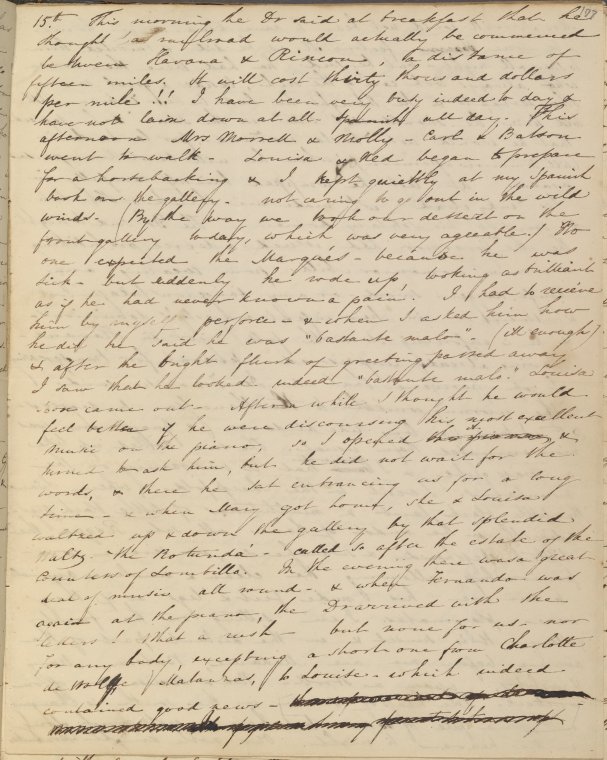 177
15th This morning the Dr said at breakfast that he
thought a railroad would actually be commenced
between Havana & Rincon, a distance of
fifteen miles. It will cost thirty thousand dollars
per mile!!! I have been very busy indeed to day &
have not lain down at all - Spanish all day. This
afternoon Mrs Morrell & Molly - Carlo & Batson
went to walk - Louisa & Ned began to prepare
for a horsebacking & I kept quietly at my Spanish
book on the gallery - not caring to go out in the wild
winds. (By the way we took our dessert on the
front gallery to day, which was very agreeable.) No
one expected the Marques - because he was
sick - but suddenly he rode up looking as brilliant
as if he had never known a pain! I had to receive
him by myself perforce - & when I asked him how
he did he said he was "bastante malo" - (ill enough)
& after the bright flush of greeting passed away
I saw that he looked indeed "bastante malo." Louisa
soon came out - After a while I thought he would
feel better if he were discoursing his most excellent
music on the piano, so I opened it &
turned to ask him, but he did not wait for the
words, & there he sat entrancing us for a long
time - & when Mary got home, she & Louisa
waltzed up & down the gallery by that splendid
waltz - the Rotunda - called so after the estate of the
Countess of Lombillo. In the evening there was a great
deal of music all round - & when Fernando was
again at the piano, the Dr arrived with the
letters! What a rush - but none for us - nor
for any body, excepting a short one from Charlotte
de Wolfe Matanzas, to Louise - which indeed
contained good news -